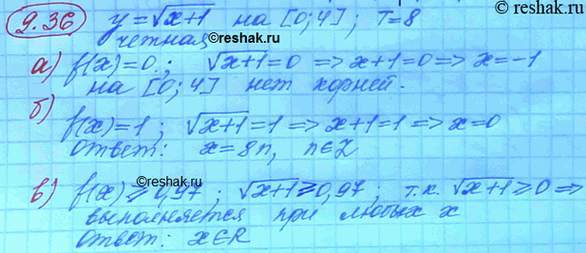 9.36 y = √x+1 на [0; 4]; T=8
четная
а) f(x)=0; √x+1=0 => x+1=0 => x=-1
на [0; 4] нет корней.
б)
f(x)=1; √x+1=1 => x+1=1 => x=0
ответ: x=8n, n∈Z
в) f(x)≥0,97; √x+1≥0,97; т.к. √x+1≥0 =>
выполняется при любых x
ответ: x∈R